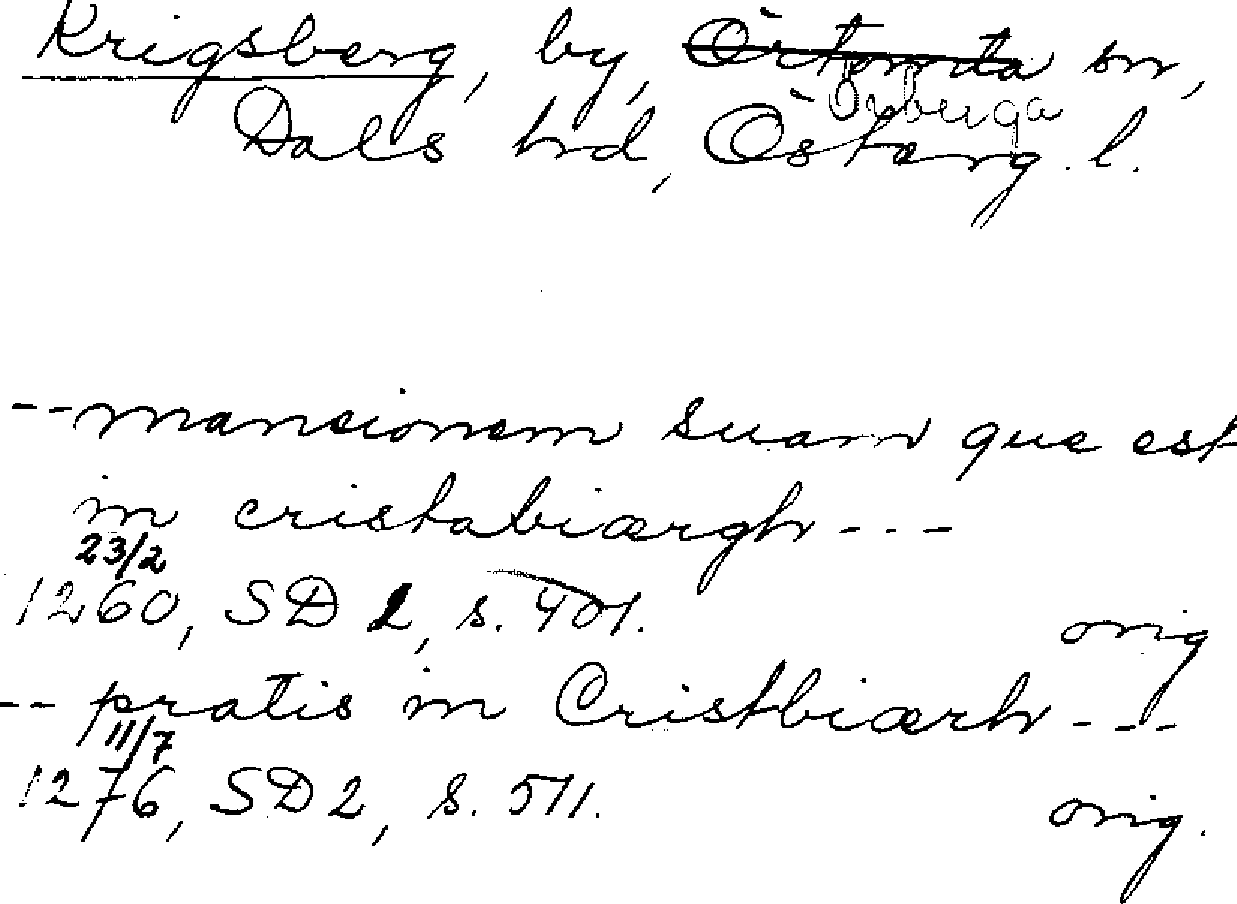 Krigsberg, by, Örtomta sn,
Örberga
Dals hd, Österg. l.
--mansionem suam que est
in cristabiærgh---
23/2
1260, SD 1, s. 401. orig
-- pratis in Cristbiærh---
11/7
1276, SD 2, s. 511. orig.